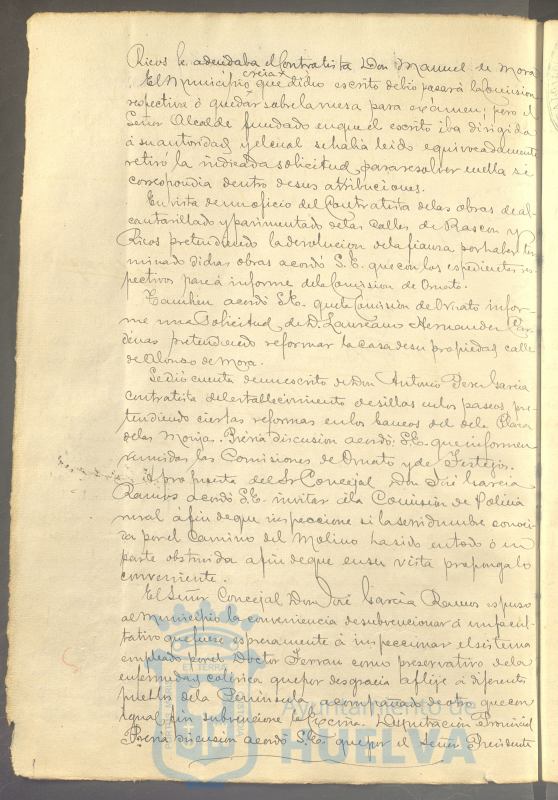 Ricos le adeudaba el Contratista Don Manuel de Mora
creia
El Municipio que dicho escrito debio pasar á la Comision
respectiva ó quedar sobre la mesa para exámen; pero el
Señor Alcalde fundado en que el escrito iba dirigido
á su autoridad y el cual se habia leido equivocadamente
retiró la indicada solicitud para resolver en ella si
correspondia dentro de sus atribuciones.
En vista de un oficio del Contratista de las obras de al-
cantarillado y pavimentado de las Calles de Rascon y
Ricos pretendiendo la devolucion de la fianza por haber ter-
minado dichas obras acordó S.E. que con los espedientes res-
pectivos pase á informe de la Comision de Ornato.
Tambien acordó S.E. que la Comision de Ornato infor-
me una Solicitud de D. Laureano Hernandez
pretendiendo reformar la casa de su propiedad calle
de Alonso de Mora.
Se dió cuenta de un escrito de Don Antonio Perez Garcia
contratista del establecimiento de sillas en los paseos pre-
tendiendo ciertas reformas en los bancos del de la Plaza
de las Monjas. Prévia discusion acordó S.E. que informen
reunidas las Comisiones de Ornato y de Festejos.
A propuesta del Sr Concejal Don José Garcia
Ramos acordó S.E. invitar á la Comision de Policia
rural á fin de que inspeccione si la servidumbre conoci-
da por el Camino del Molino ha sido en todo ó en
parte obstruida a fin de que en su vista proponga lo
conveniente.
El Señor Concejal Don José Garcia Ramos espuso
al Municipio la conveniencia de subvencionar á un facul-
tativo que fuese espresamente á inspeccionar el sistema
empleado por el Doctor Ferran como preservativo de la
enfermedad colérica que por desgracia aflije á diferentes
pueblos de la Peninsula acompañado de otro que con
igual fin subvencione la Excma. Diputacion Provincial
Prévia discusion acordó S.E. que por el Señor Presidente
Ayuntamiento de
HUELVA